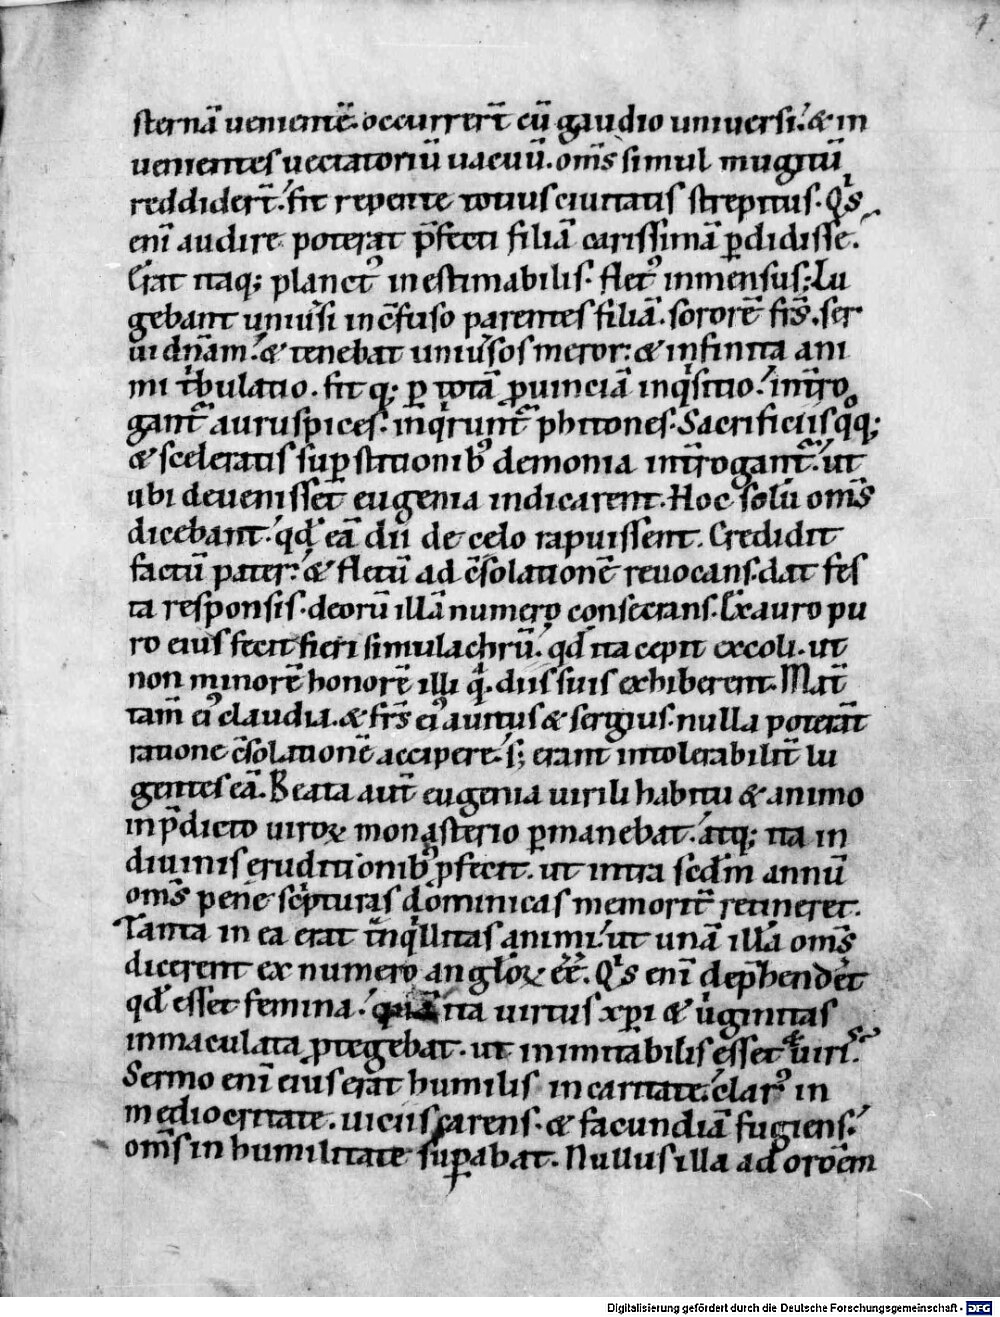 sternā uenientē. occurrerť cū gaudio uniuersi. & in
uenientes uectatoriū uacuū. om̄s simul mugitū
reddiderť. fit repente totius ciuitatis strepitus. Qͥs
enī audire poterat p̄fecti filiā carissimā ꝑdidisse.
Erat itaq; planctꝰ inestimabilis. fletꝰ inmensus; Lu
gebant uniuˀsi in c̄fuso parentes filiā. sororē fr̄s. ser
ui dn̄am. & tenebat uniuˀsos meror. & infinita ani
mi tͥbulatio. fit q; ꝑ totā ꝓuinciā inqͥsitio. int̄ro
gantᷣ auruspices. inqͥruntᷣ phitones. Sacrificiis qͦq;
& sceleratis suꝑstitionibꝰ demonia int̄rogantᷣ. ut
ubi deuenisset eugenia indicarent. Hoc solū om̄s
dicebant. qđ eā dii de celo rapuissent. Credidit
factū pater. & fletū ad c̄solationē reuocans. dat fes
ta responsis. deorū illā numero consecrans. Ex auro pu
ro eius fecit fieri simulachrū. qđ ita cepit excoli. ut
non minorē honorē illi qͣ. diis suis exhiberent. Mať
tam̄ eiꝰ claudia. & fr̄s eiꝰ auitus & sergius. nulla poterāt
ratione c̄solationē accipere. s; erant intolerabiliť lu
gentes eā. Beata auť eugenia uirili habitu & animo
in p̄dicto uiroꝝ monasterio ꝑmanebat. atq; ita in
diuinis eruditionibꝰ ꝓfecit. ut intra scďm annū
om̄s pene scͥpturas dominicas memoriť retineret.
Tanta in ea erat tͣnqͥllitas animi. ut unā illā om̄s
dicerent ex numero angloꝝ ēē. Qͥs enī dep̄henderet
qđ esset femina. quā ita uirtus xp̄i & uͥginitas
inmaculata ꝓtegebat. ut inimitabilis esset & uiris.
Sermo enī eius erat humilis in caritate. clarꝰ in
mediocritate. uiciis carens. & facundiā fugiens.
om̄s in humilitate suꝑabat. Nullus illa ad orōem